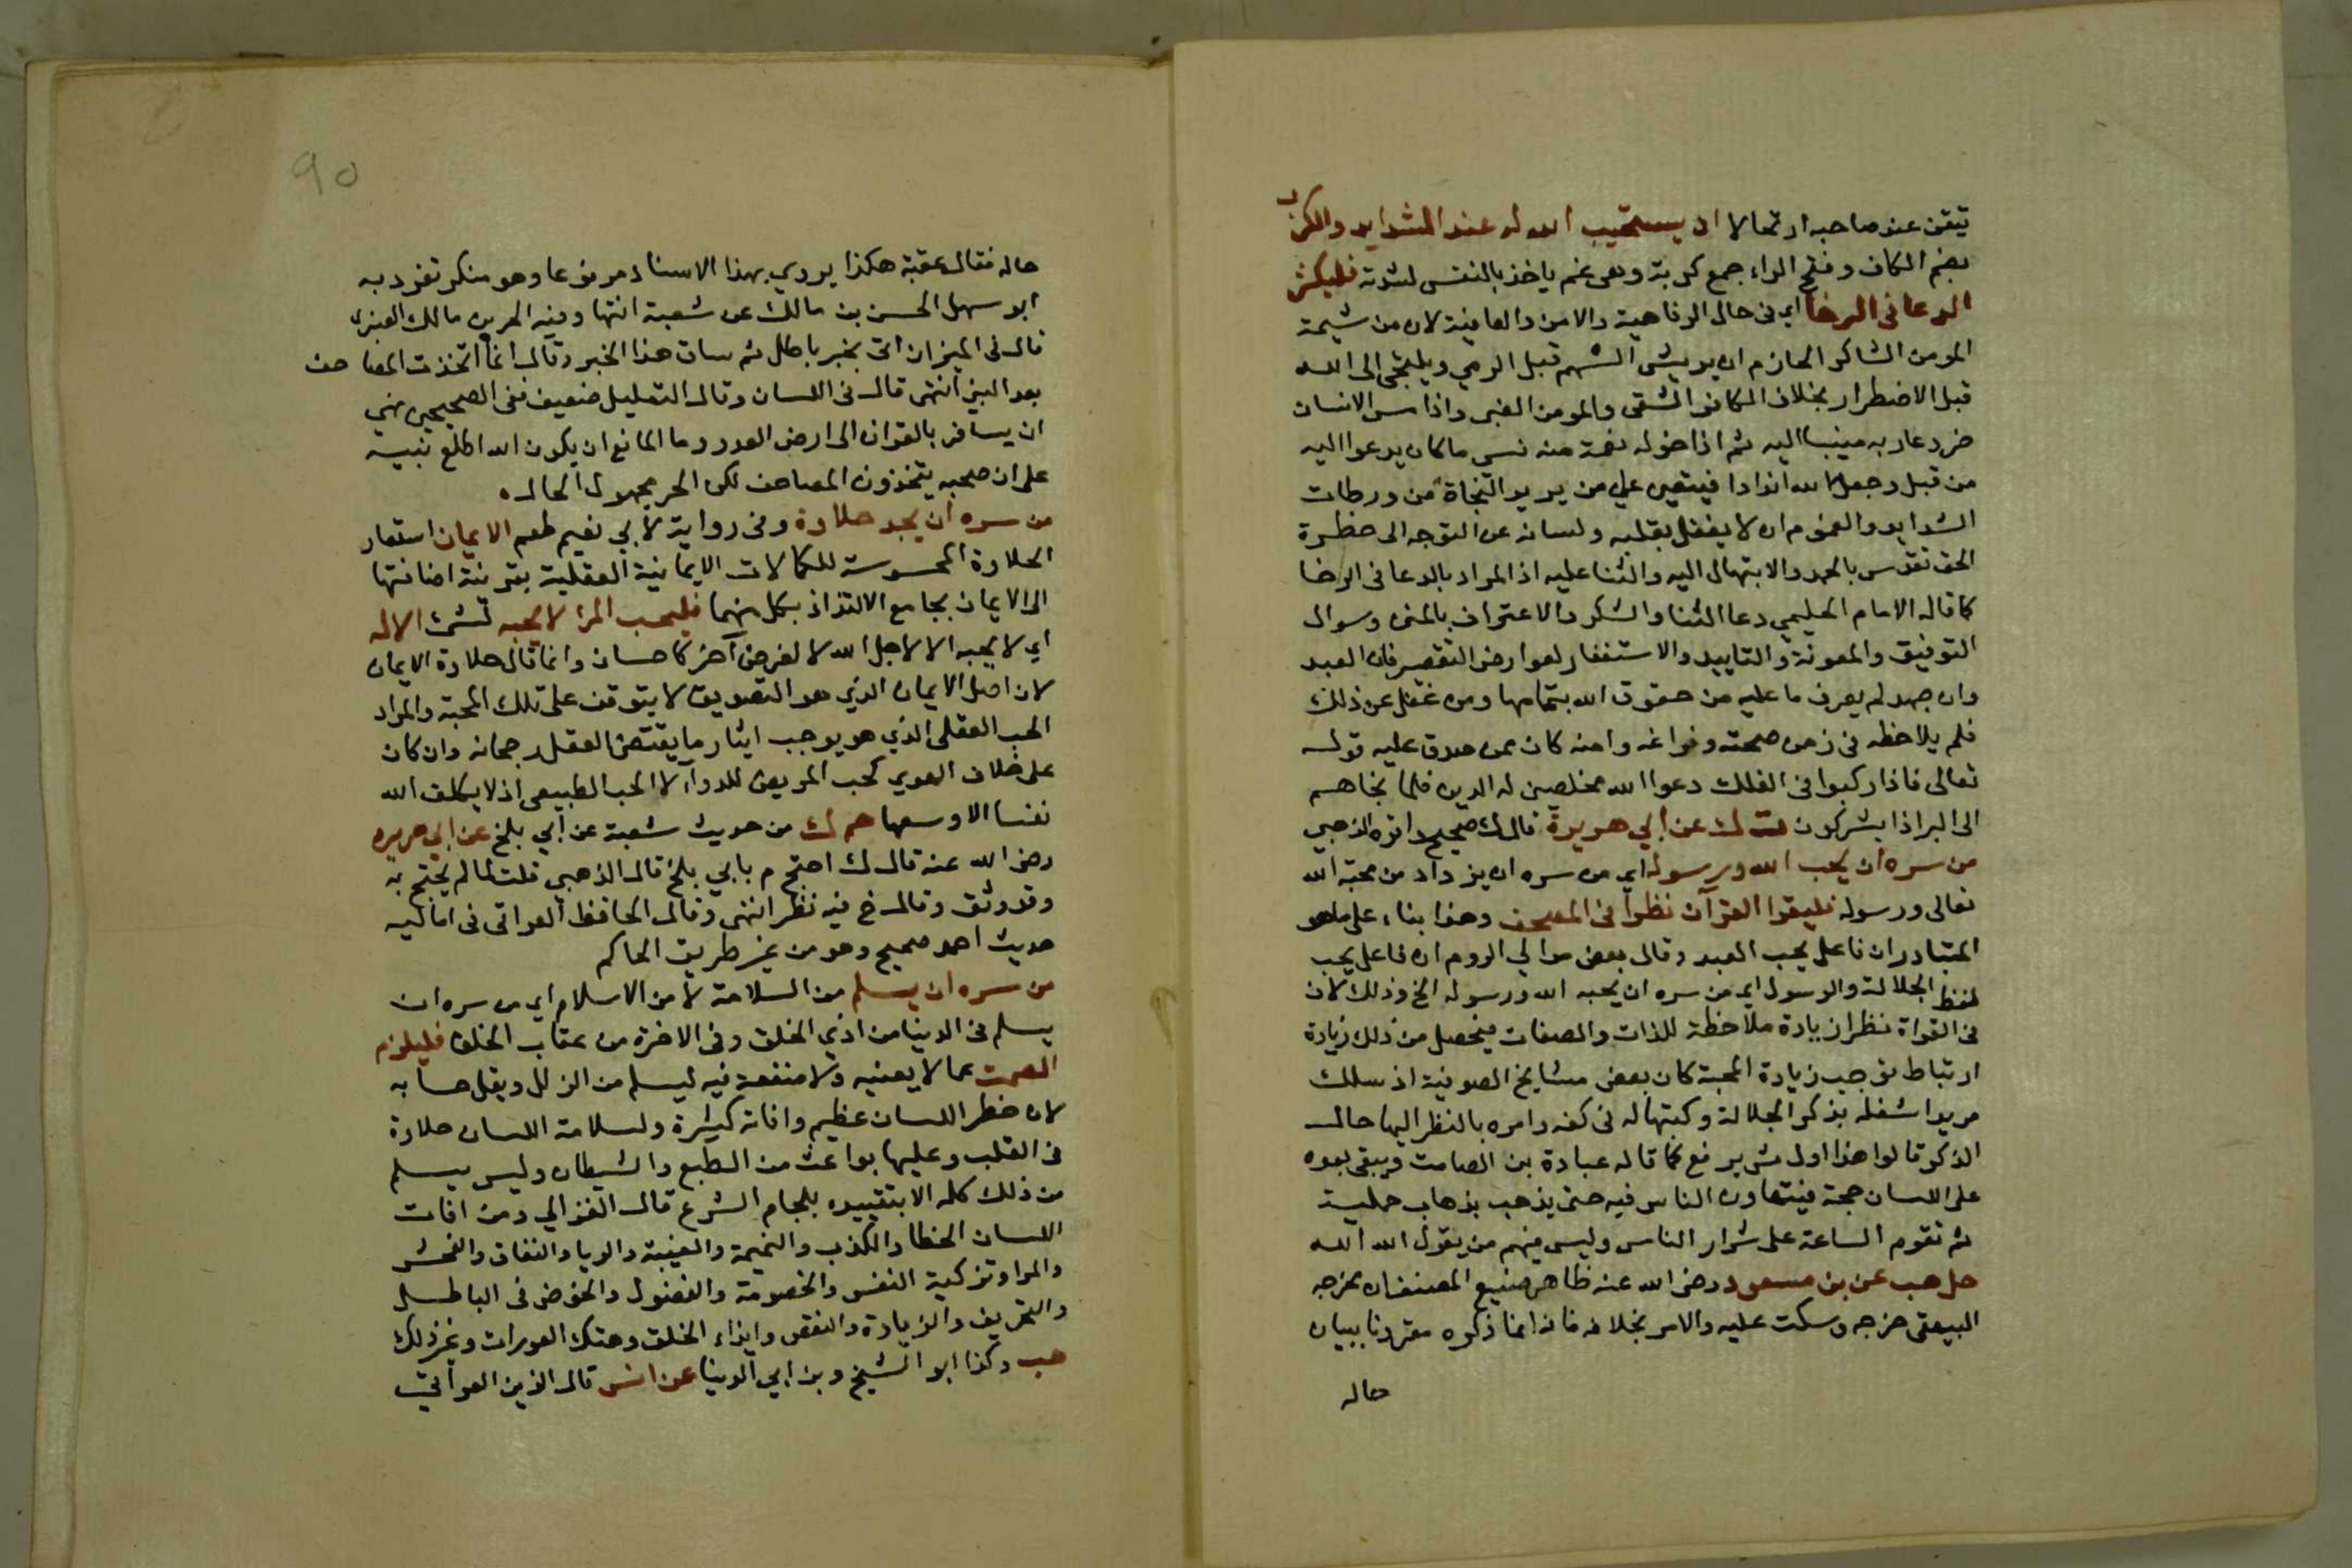 تيقن عند صاحبه ارتحالا ان يستجيب الله له عند الشدايد والكرب
بضم الكاف وفتح الراء جمع كربة وهى غم ياخذ بالنفس لشدته فليكثر
الدعا فى الرخا اي فى حال الرفاهية والامن والعافية لان من شيمة
المومن الشاكر الحازم ان يريش السهم قبل الرمي ويلتجى الى الله
قبل الاضطرار بخلاف الكافر الشقى والمومن الغبى واذا مس الانسان
ضر دعا ربه منيبا اليه ثم اذا خوله نعمة منه نسى ما كان يدعوا اليه
من قبل وجعل لله اندادا فيتعين على من يريد النجاة من ورطات
الشدايد والغموم ان لا يغفل بقلبه ولسانه عن التوجه الى حظرة
الحق تقدس بالحمد والابتهال اليه والثنا عليه اذ المراد بالدعا فى الرخا
كما قاله الامام الحليمي دعا الثنا والشكر والاعتراف بالمنن وسوال
التوفيق والمعونة والتاييد والاستغفار لعوارض التقصير فان العبد
وان جهد لم يعرف ما عليه من حقوق الله بتمامها ومن غفل عن ذلك
فلم يلاحظه فى زمن صحته وفراغه وامنه كان ممن صدق عليه قوله
تعالى فاذا ركبوا فى الفلك دعوا الله مخلصين له الدين فلما نجاهم
الى البر اذا يشركون ت ك عن ابي هريرة قال ك صحيح واقره الذهبي
من سره ان يحب الله ورسوله اي من سره ان يزداد من محبة الله
تعالى ورسوله فليقرا القرآن نظرا فى المصحف وهذا بناء على ما هو
المتبادر ان فاعل يحب العبد وقال بعض موالي الروم ان فاعل يحب
لفظ الجلالة والرسول اي من سره ان يحبه الله ورسوله الخ وذلك لان
فى القراة نظرا زيادة ملاحظة للذات والصفات فيحصل من ذلك زيادة
ارتباط توجب زيادة المحبة كان بعض مشايخ الصوفية اذ سلك
مريدا شغله بذكر الجلالة وكتبها له فى كفه وامره بالنظر اليها حال
الذكر قالوا هذا اول شى يرفع كما قاله عبادة بن الصامت ويبقى بعده
على اللسان حجة فيتهاون الناس فيه حتى يذهب بذهاب حمليته
ثم تقوم الساعة على شرار الناس وليس فيهم من يقول الله الله
حل هب عن بن مسعود رضى الله عنه ظاهر صنيع المصنف ان مخرجه
البيهقى خرجه وسكت عليه والامر بخلافه فانه انما ذكره مقرونا ببيان
حاله
90
حاله فقال عقبة هكذا يروي بهذا الاسناد مرفوعا وهو منكر تفرد به
ابو سهل الحسن بن مالك عن شعبة انتها وفيه الحر بن مالك العنبرى
قال فى الميزان اتى بخبر باطل ثم ساق هذا الخبر وقال انما اتخذت المصاحف
بعد النبي انتهى قال فى اللسان وقال التعليل ضعيف ففى الصحيحين نهى
ان يسافر بالقران الى ارض العدو وما المانع ان يكون الله اطلع نبيه
على ان صحبه يتخذون المصاحف لكن الحر مجهول الحال ه
من سره ان يجد حلاوة وفى رواية لابي نعيم طعم الايمان استعار
الحلاوة المحسوسة للكمالات الايمانية العقلية بقرينة اضافتها
الى الايمان بجامع الالتذاذ بكل منهما فليحب المرا لا يحبه لشى الا لله
اي لا يحبه الا لاجل الله لا لغرض آخر كاحسان وانما قال حلاوة الايمان
لان اصل الايمان الذي هو التصديق لا يتوقف على تلك المحبة والمراد
الحب العقلى الذي هو يوجب ايثار ما يقتضى العقل رجحانه وان كان
على خلاف الهوي كحب المريض للدوآء لا الحب الطبيعى اذ لا يكلف الله
نفسا الا وسعها حم ك من حديث شعبة عن ابي بلج عن ابي هريره
رضى الله عنه قال ك احتج م بابي بلج قال الذهبي قلت لا لم يحتج به
وقد وثق وقال خ فيه نظر انتهى وقال الحافظ العراقى فى اماليه
حديث احمد صحيح وهو من غير طريق الحاكم
من سره ان يسلم من السلامة لا من الاسلام اي من سره ان
يسلم فى الدنيا من اذي الخلق وفى الاخرة من عقاب الخلق فليلزم
الصمت عما لا يعنيه ولا منفعة فيه ليسلم من الزلل ويقل حسابه
لان خطر اللسان عظيم وافاته كثيرة ولسلامة اللسان حلاوة
فى القلب وعليها بواعث من الطبع والشيطان وليس يسلم
من ذلك كله الا بتقييده بلجام الشرع قال الغزالي ومن افات
اللسان الخطا والكذب والنميمة والغيبة والريا والنفاق والفحش
والمرا وتزكية النفس والخصومة والفضول والخوض فى الباطل
والتحريف والزيادة والنقص وايذاء الخلق وهتك العورات وغير ذلك
هب وكذا ابو الشيخ وبن ابي الدنيا عن انس قال الزين العراقي